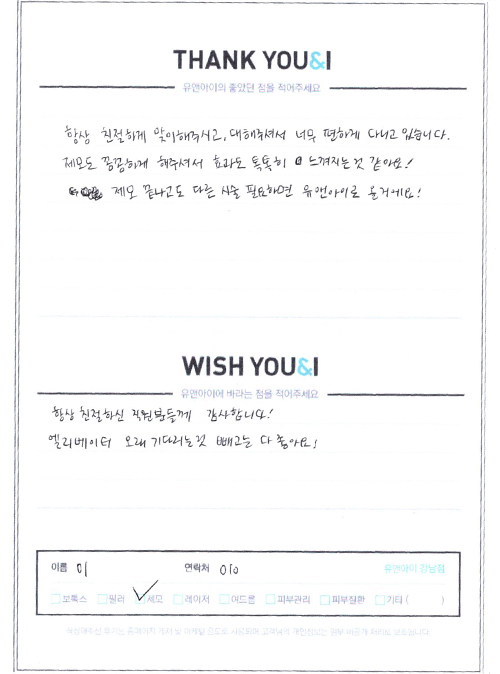 THANK YOU&I
유앤아이의 좋았던 점을 적어주세요
항상 친절하게 맞이해주시고, 대해주셔서 너무 편하게 다니고 있습니다.
제모도 꼼꼼하게 해주셔서 효과도 톡톡히 느껴지는 것 같아요!
제모 끝나고도 다른 시술 필요하면 유앤아이로 올거에요!
WISH YOU&I
유앤아이에 바라는 점을 적어주세요
항상 친절하신 직원분들께 감사합니다!
엘리베이터 오래 기다리는것 빼고는 다 좋아요!
이름 이 연락처 010 유앤아이 강남점
보톡스 필러 제모 레이저 여드름 피부관리 피부질환 기타 ( )